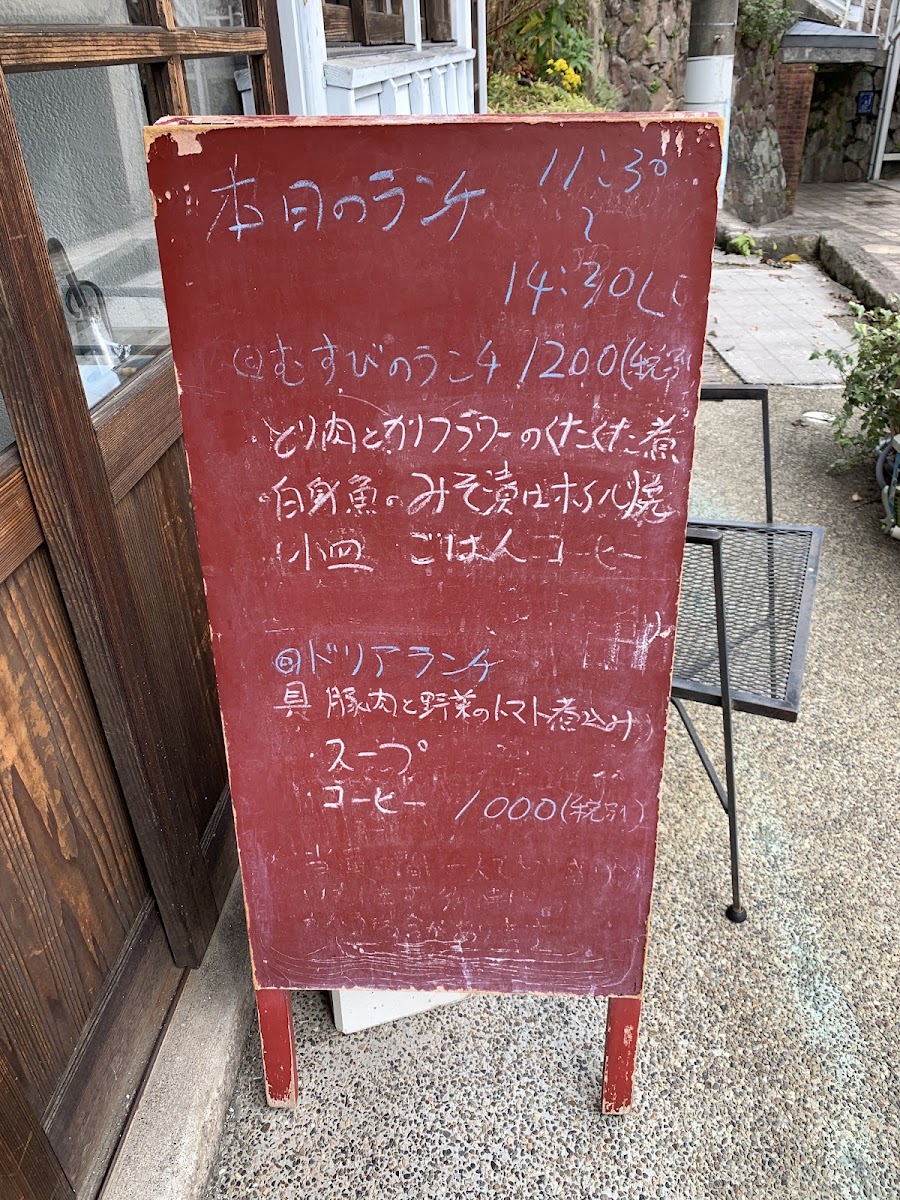 本日のランチ 11:30
〜
14:30 L
むすびのランチ 1200(税別
とり肉とカリフラワーのくたくた煮
・白身魚のみそ漬けホイル焼
小皿 ごはん コーヒー
ドリアランチ
具 豚肉と野菜のトマト煮込み
・スープ
・コーヒー 1000(税別)